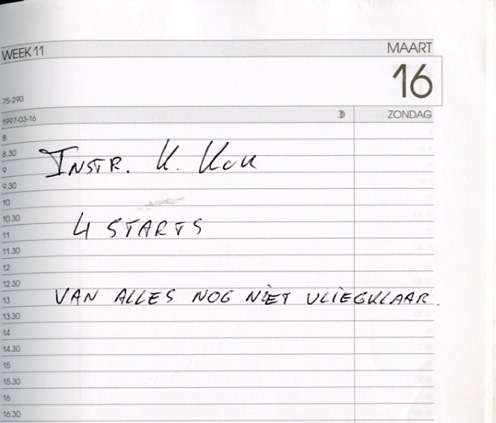 WEEK 11 MAART
16
75-290
1997-03-16 ZONDAG
8
8.30
INSTR. K. KOK
9
9.30
10
10.30
4 STARTS
11
11.30
12
12.30
VAN ALLES NOG NIET VLIEGKLAAR.
13
13.30
14
14.30
15
15.30
16
16.30